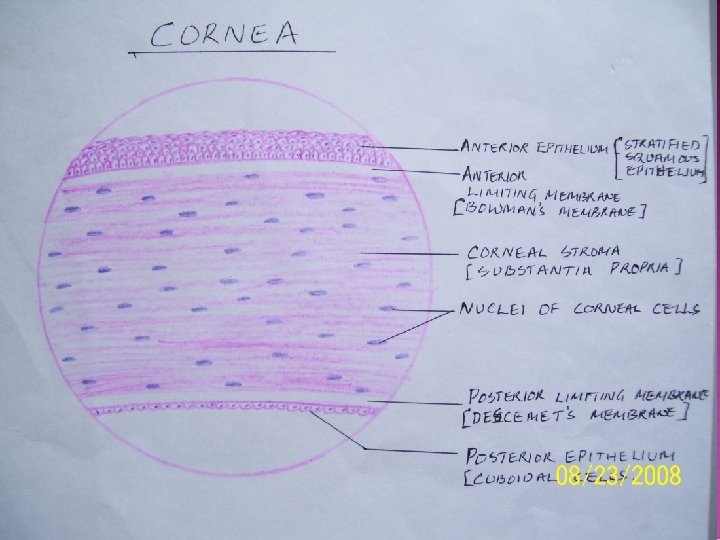 CORNEA
ANTERIOR EPITHELIUM [STRATIFIED
SQUAMOUS
EPITHELIUM]
ANTERIOR
LIMITING MEMBRANE
[BOWMAN'S MEMBRANE]
CORNEAL STROMA
[SUBSTANTIA PROPRIA]
NUCLEI OF CORNEAL CELLS
POSTERIOR LIMITING MEMBRANE
[DESCEMET'S MEMBRANE]
POSTERIOR EPITHELIUM
[CUBOIDAL CELLS
08/23/2008